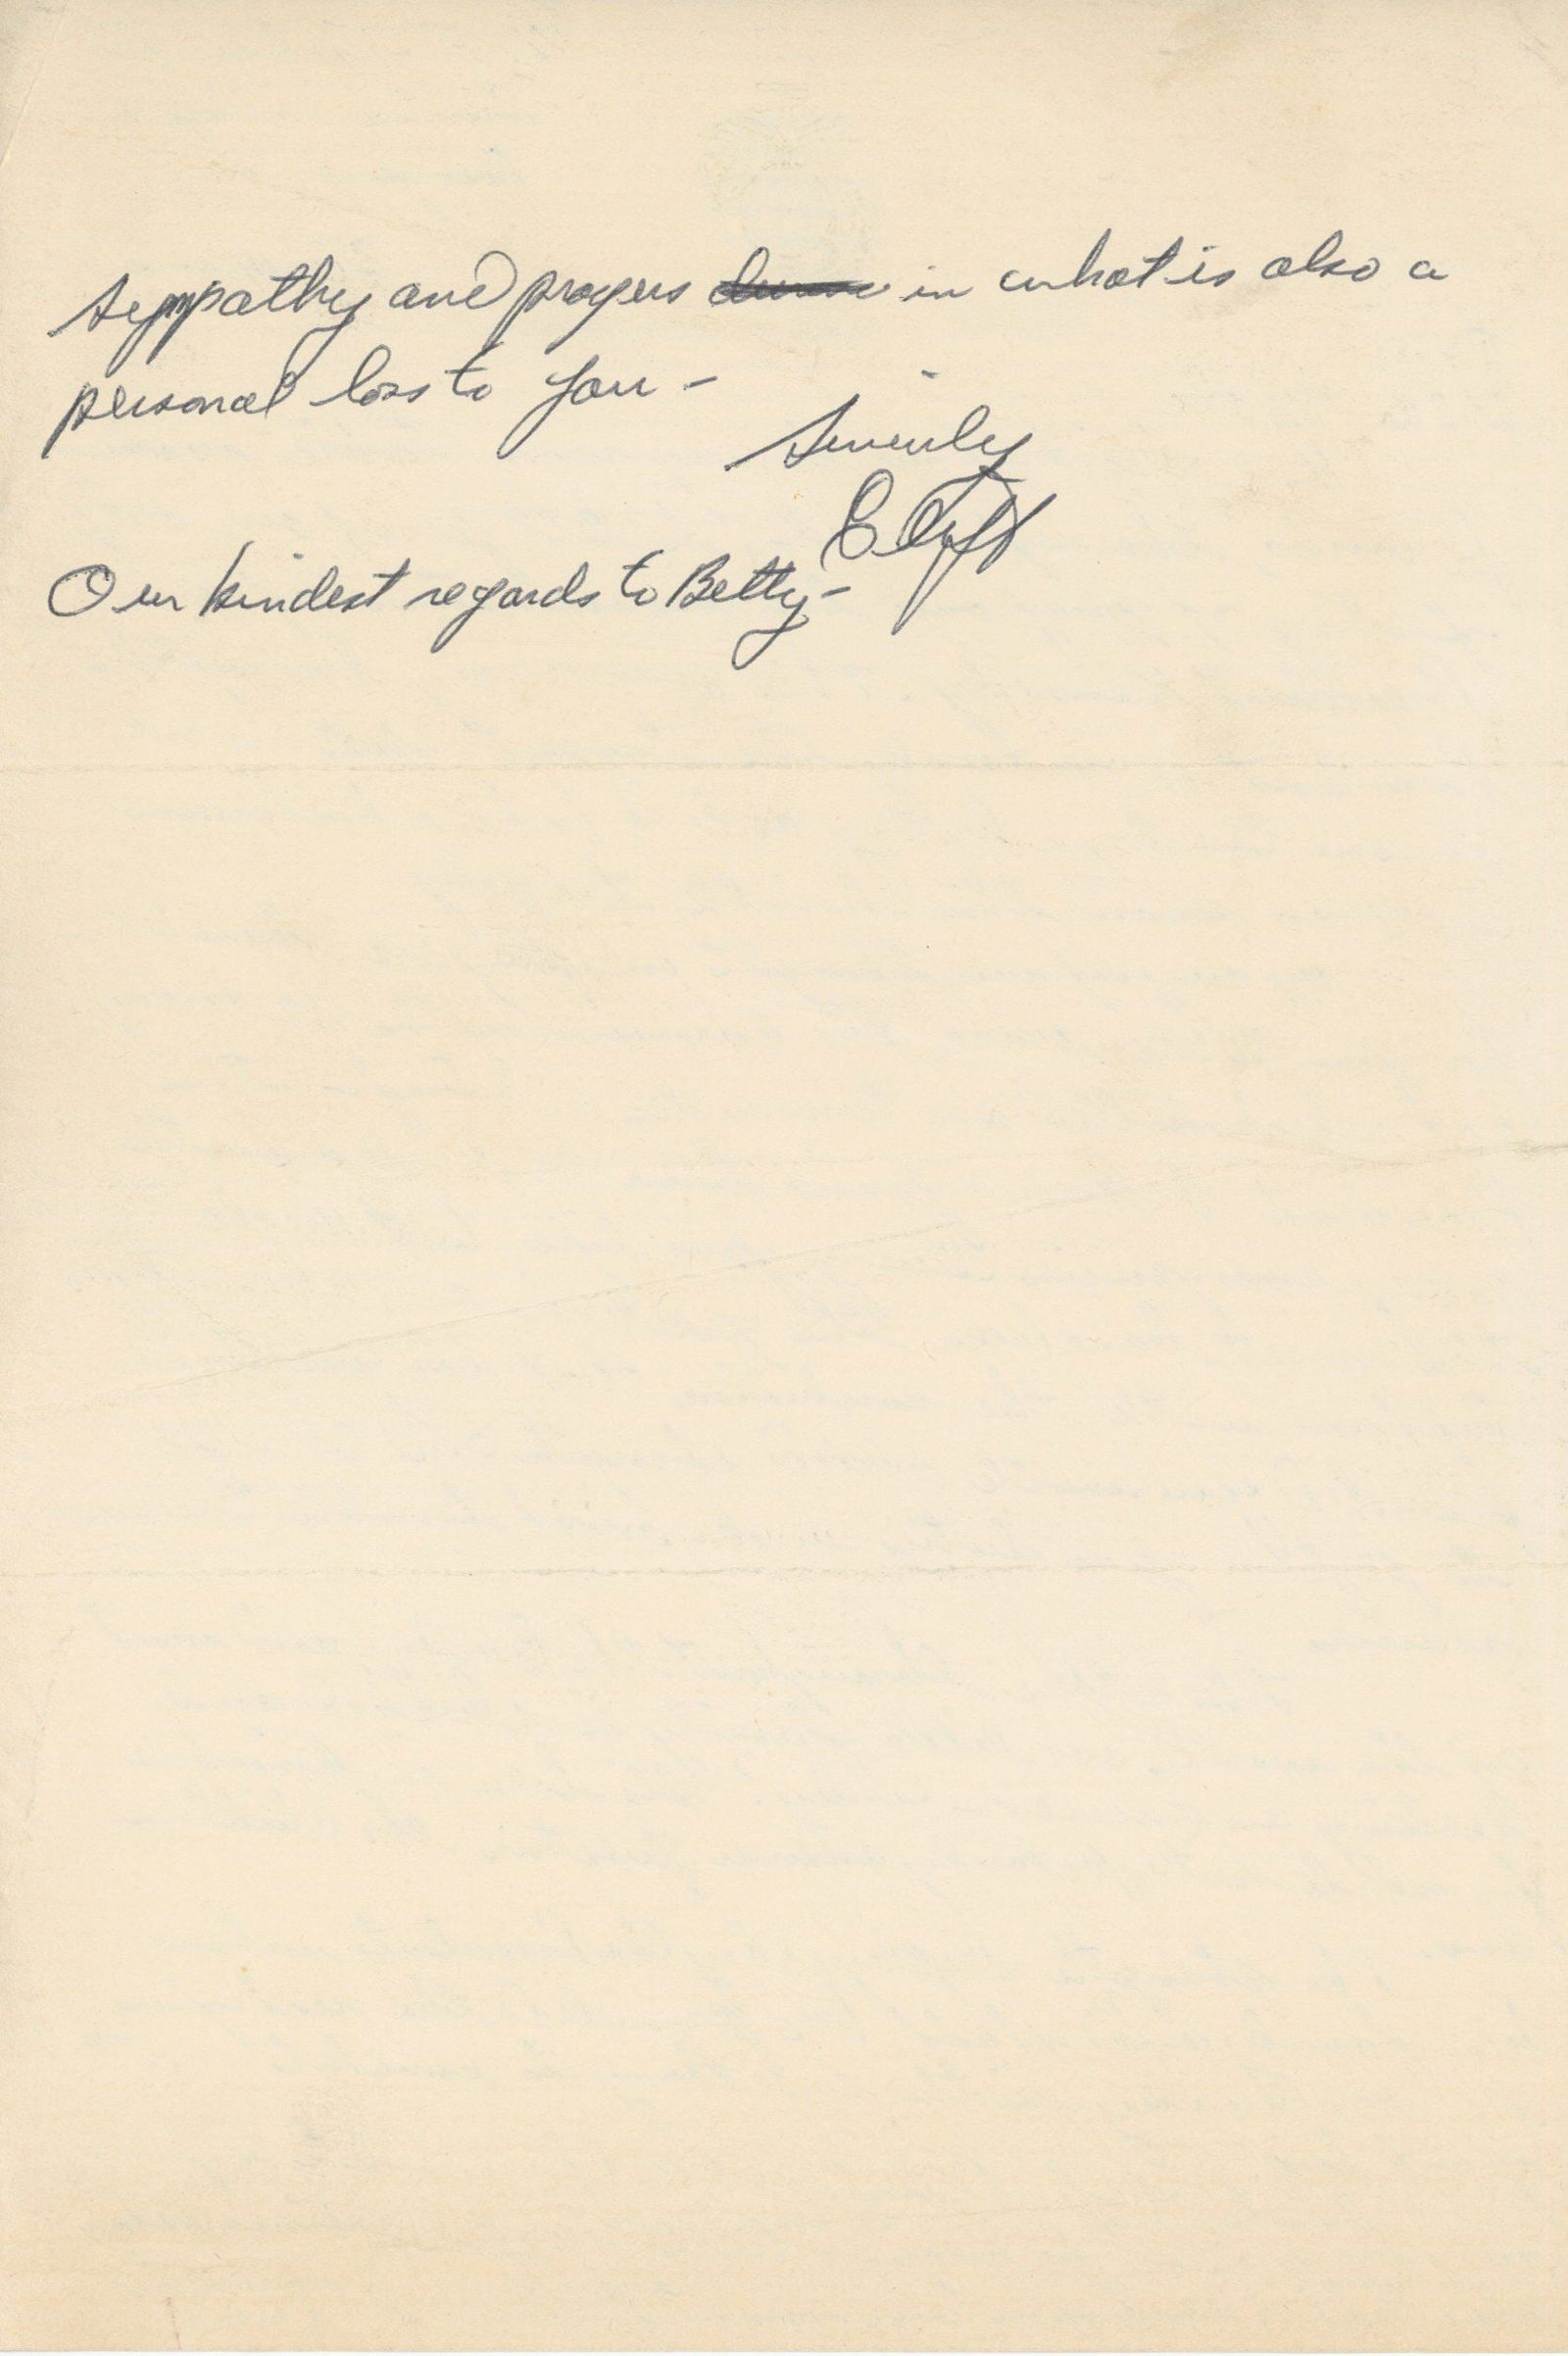 sympathy and prayers in what is also a
personal loss to you -
Sincerely
Our kindest regards to Betty -